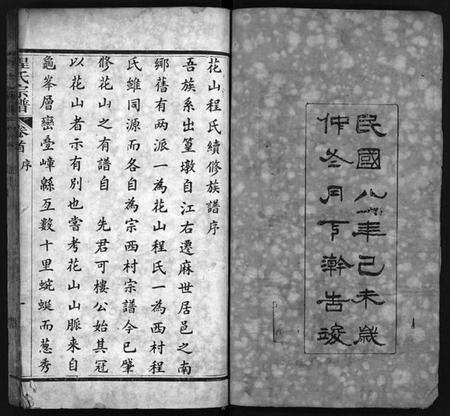 民國八年己未歲
仲冬月下澣告竣
花山程氏續修族譜序
吾族系出篁墩自江右遷麻世居邑之南
鄉舊有兩派一為花山程氏一為西村程
氏雖同源而各自為宗西村宗譜今已肇
修花山之有譜自 先君可樓公始其冠
以花山者示有別也嘗考花山山脈來自
龜峯層巒疊嶂緜亙數十里蜿蜒而葱秀
程氏宗譜
卷首 序
一